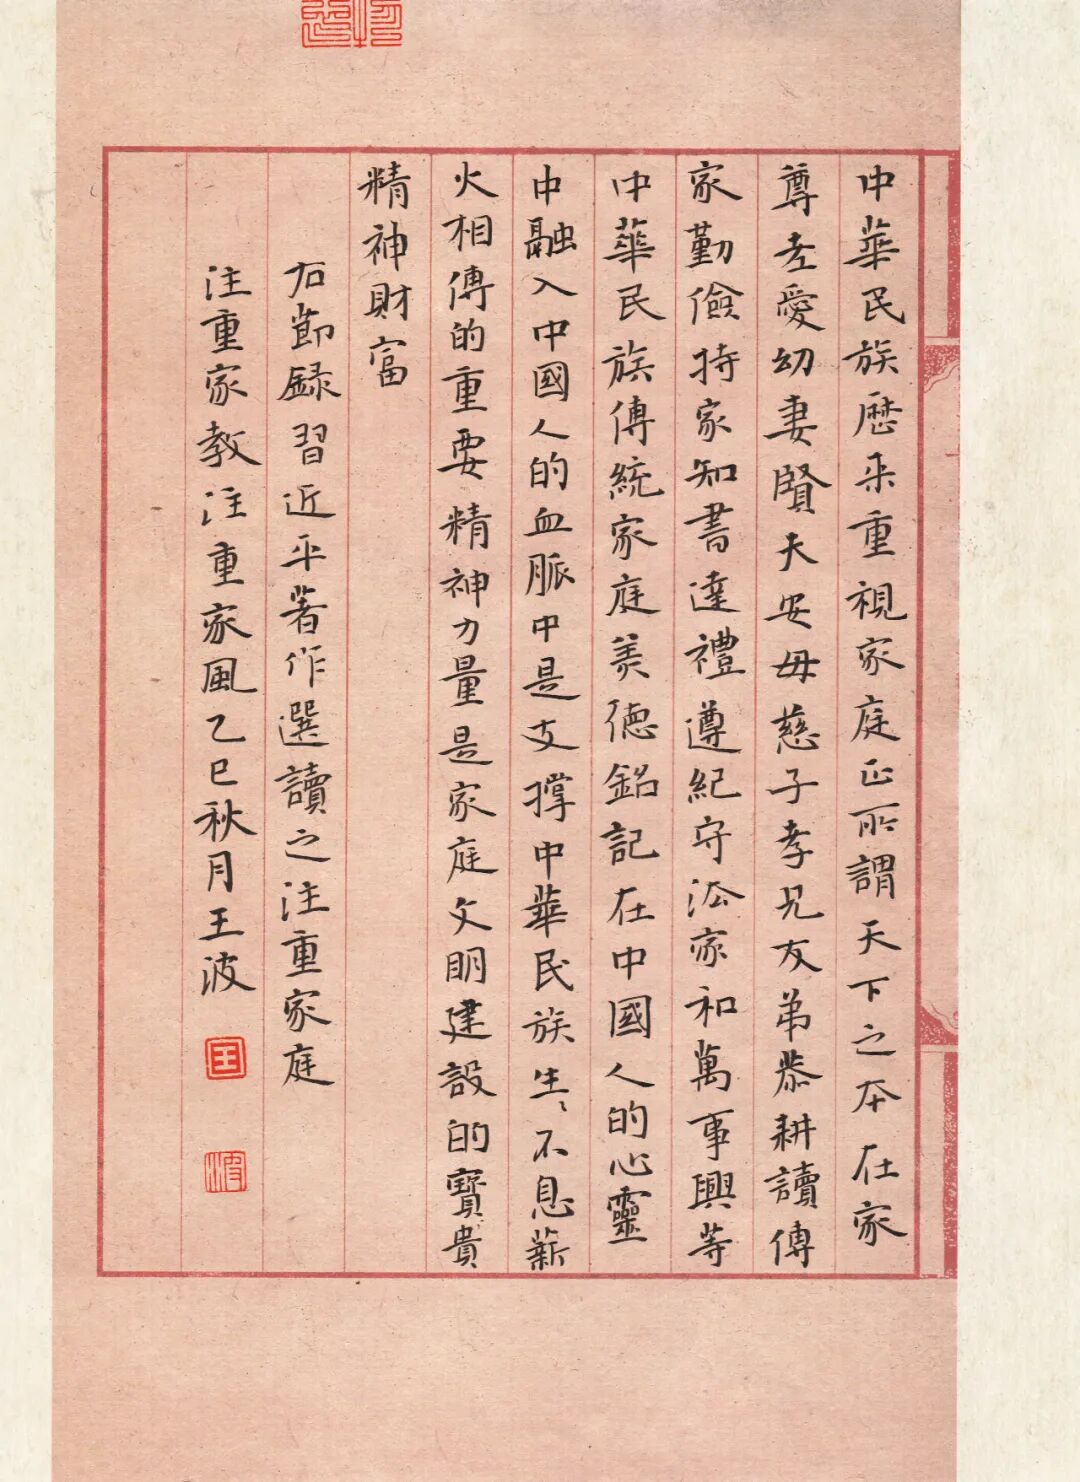 中華民族歷来重視家庭正所謂天下之本在家
尊老愛幼妻賢夫安母慈子孝兄友弟恭耕讀傳
家勤儉持家知書達禮遵紀守法家和萬事興等
中華民族傳統家庭美德銘記在中國人的心靈
中融入中國人的血脈中是支撐中華民族生〻不息薪
火相傳的重要精神力量是家庭文明建設的寶貴
精神財富
右節録習近平著作選讀之注重家庭
注重家教注重家風乙巳秋月王波
王
波